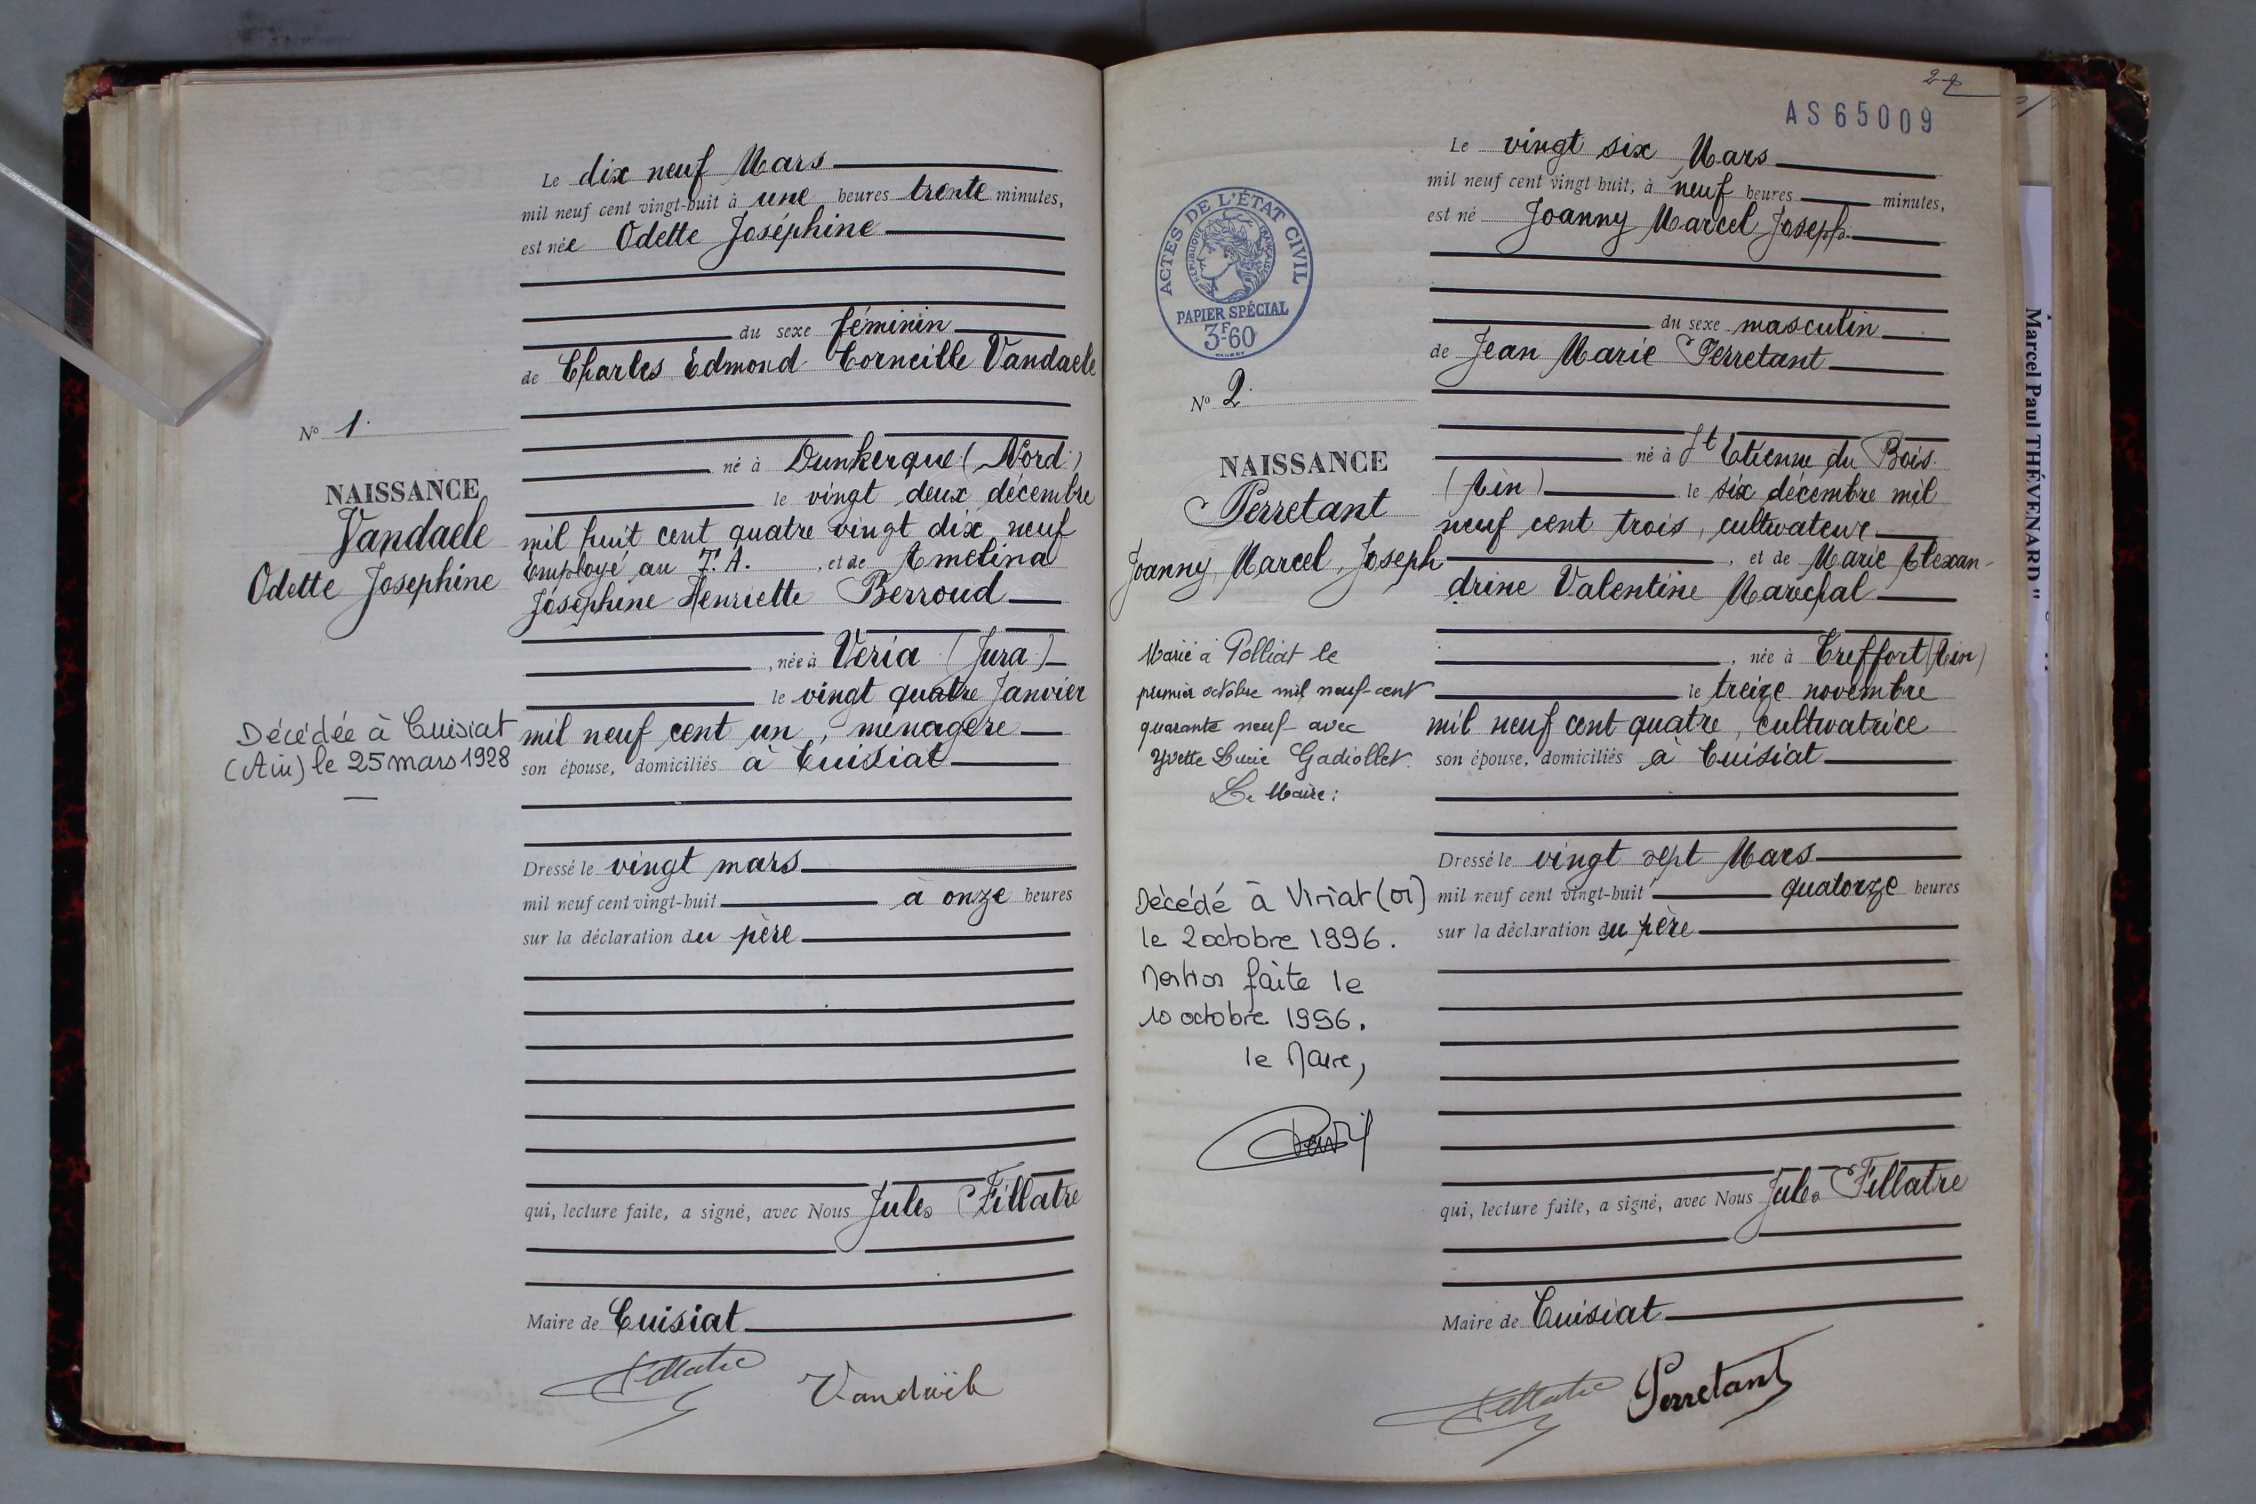 Le dix neuf Mars
mil neuf cent vingt-huit à une heures trente minutes,
est née Odette Joséphine
du sexe féminin
de Charles Edmond Corneille Vandaele
No 1.
né à Dunkerque (Nord)
le vingt deux décembre
NAISSANCE
Vandaele
Odette Josephine
mil huit cent quatre vingt dix neuf
Employé au T. A. , et de Amelina
Joséphine Henriette Berroud
, née à Véria (Jura)
le vingt quatre Janvier
Décédée à Cuisiat
(Ain) le 25 mars 1928
mil neuf cent un, ménagère
son épouse, domiciliés à Cuisiat
Dressé le vingt mars
mil neuf cent vingt-huit à onze heures
sur la déclaration du père
qui, lecture faite, a signé, avec Nous Jules Fillatre
Maire de Cuisiat
Fillatre Vandaële
AS65009
Le vingt six Mars
mil neuf cent vingt-huit, à neuf heures minutes,
est né Joanny Marcel Joseph
ACTES DE L'ÉTAT CIVIL
RÉPUBLIQUE FRANÇAISE
PAPIER SPÉCIAL
3F60
du sexe masculin
de Jean Marie Perretant
No 2.
né à St Etienne du Bois
(Ain) le six décembre mil
neuf cent trois, cultivateur
NAISSANCE
Perretant
Joanny, Marcel, Joseph
, et de Marie Alexan-
drine Valentine Maréchal
, née à Treffort (Ain)
le treize novembre
mil neuf cent quatre, cultivatrice
son épouse, domiciliés à Cuisiat
Marié à Polliat le
premier octobre mil neuf-cent
quarante neuf avec
Yvette Lucie Gadiollet.
Le Maire:
Dressé le vingt sept Mars
mil neuf cent vingt-huit quatorze heures
sur la déclaration du père
Décédé à Viriat (01)
le 2 octobre 1996.
Mention faite le
10 octobre 1996.
le Maire,
qui, lecture faite, a signé, avec Nous Jules Fillatre
Maire de Cuisiat
Fillatre Perretant
Marcel Paul THÉVENARD"